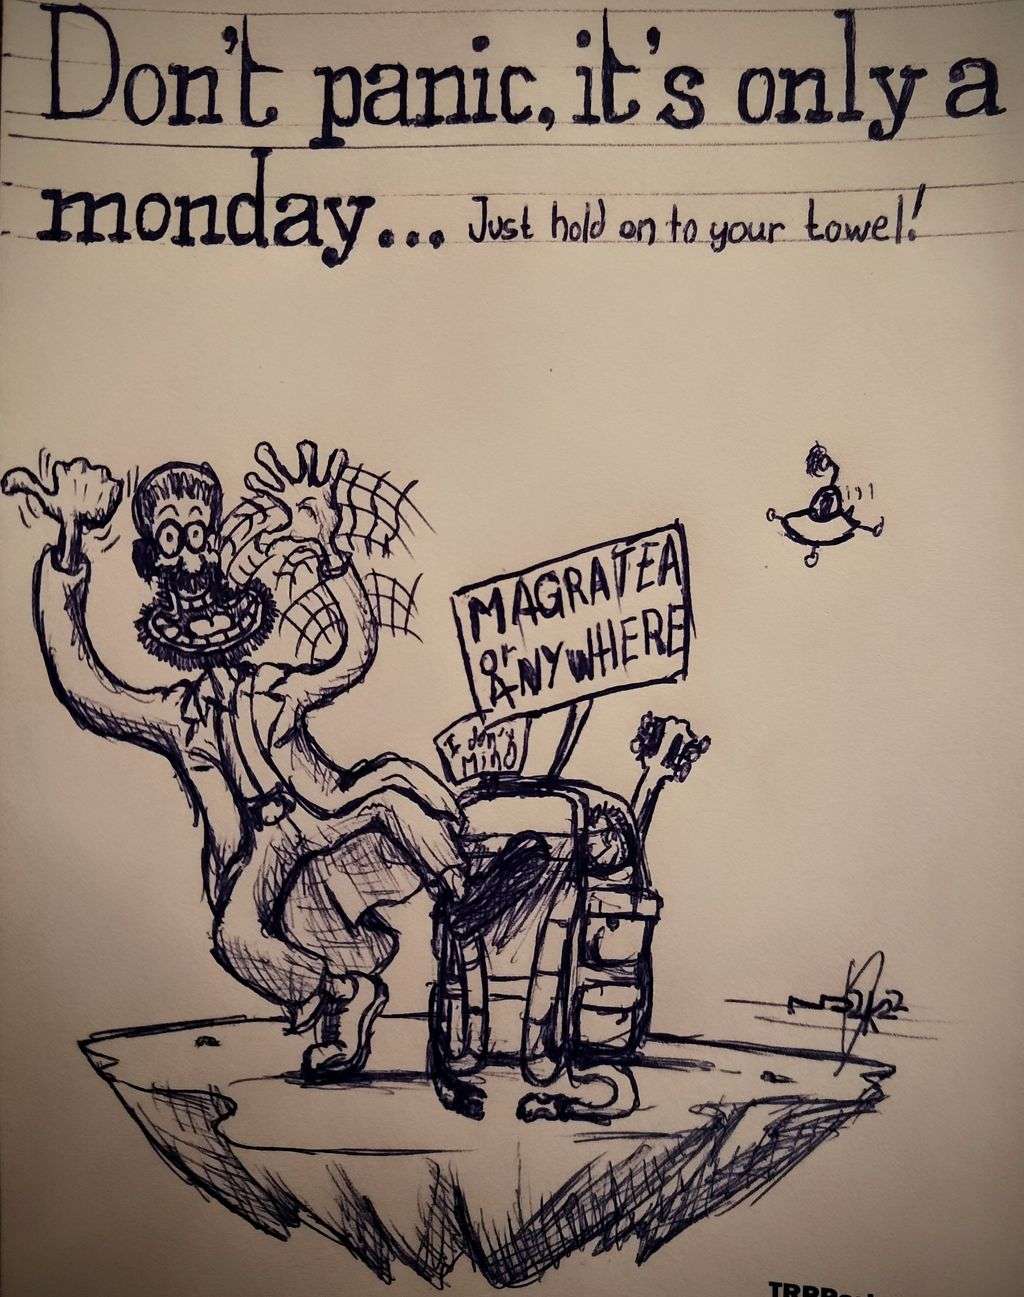 Don't panic, it's only a
monday... Just hold on to your towel!
MAGRATEA
or ANYWHERE
I don't
Mind